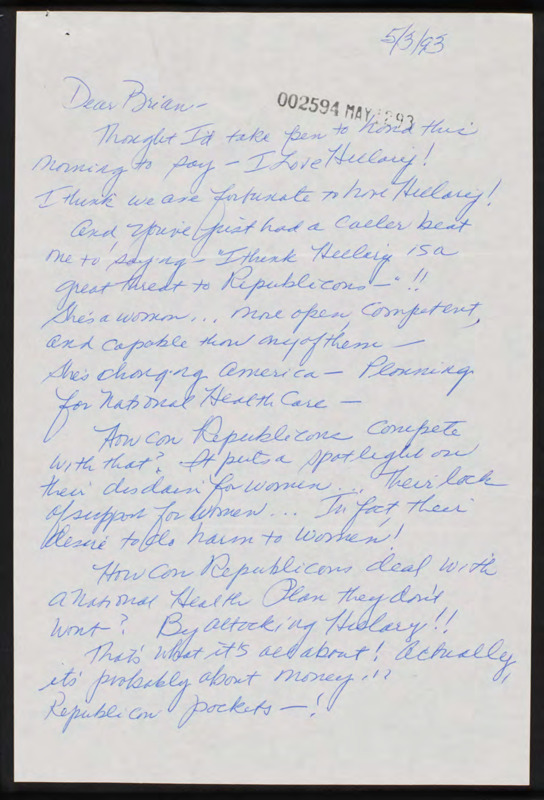 5/3/93
Dear Brian-
002594 MAY 93
Thought I'd take pen to hand this
morning to say - I Love Hillary!
I think we are fortunate to have Hillary!
And you've just had a caller beat
me to saying - "I think Hillary is a
great threat to Republicans-" !!
She's a woman... more open, competent,
and capable than any of them -
She's changing America - Planning
for National Health Care -
How can Republicans compete
with that? It puts a spotlight on
their disdain for women... Their lack
of support for women... In fact, their
desire to do harm to women!
How can Republicans deal with
a National Health Plan they don't
want? By attacking Hillary!!
That's what it's all about! Actually,
it's probably about money...
Republican pockets - !